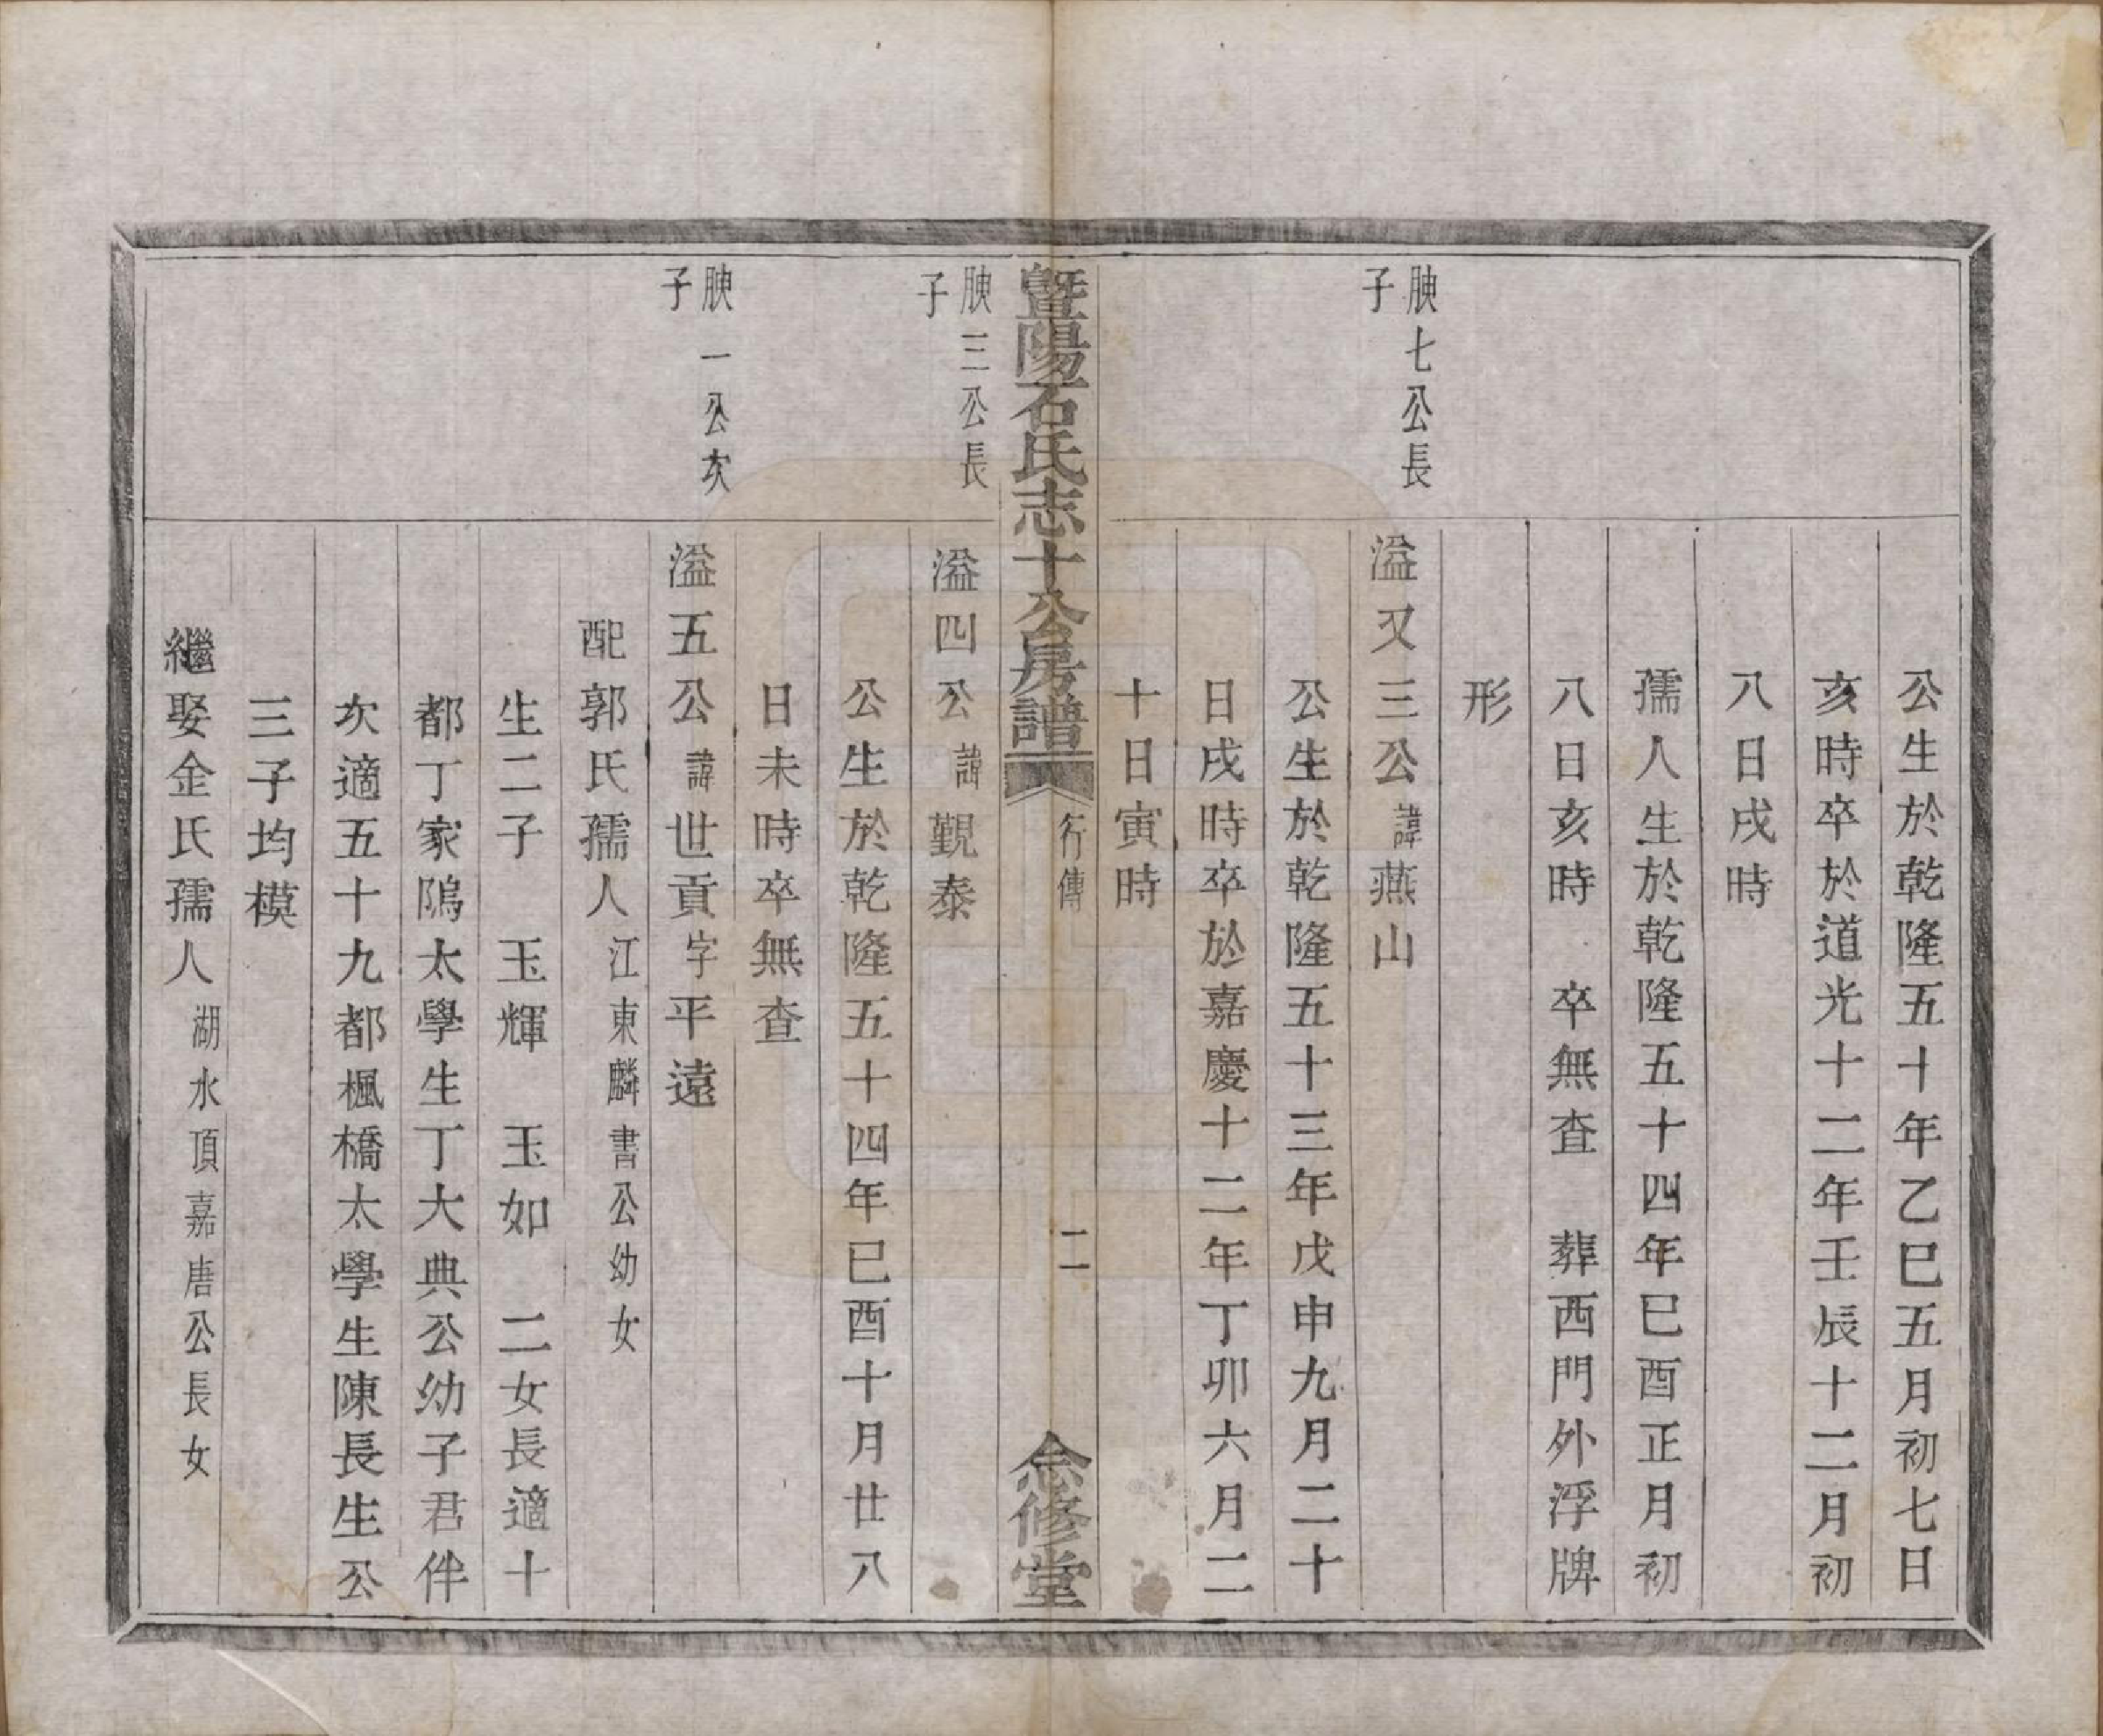 公生於乾隆五十年乙巳五月初七日
亥時卒於道光十二年壬辰十二月初
八日戌時
孺人生於乾隆五十四年巳酉正月初
八日亥時　卒無查　葬西門外浮牌
形
腴七公長
子
溢又三公諱燕山
公生於乾隆五十三年戊申九月二十
日戌時卒於嘉慶十二年丁卯六月二
十日寅時
暨陽石氏志十公房譜
行傳
二
念修堂
腴三公長
子
溢四公諱覲泰
公生於乾隆五十四年巳酉十月廿八
日未時卒無查
腴一公次
子
溢五公諱世貢字平遠
配郭氏孺人江東麟書公幼女
生二子　玉輝　玉如　二女長適十
都丁家隝太學生丁大典公幼子君伴
次適五十九都楓橋太學生陳長生公
三子均模
繼娶金氏孺人湖水頂嘉唐公長女